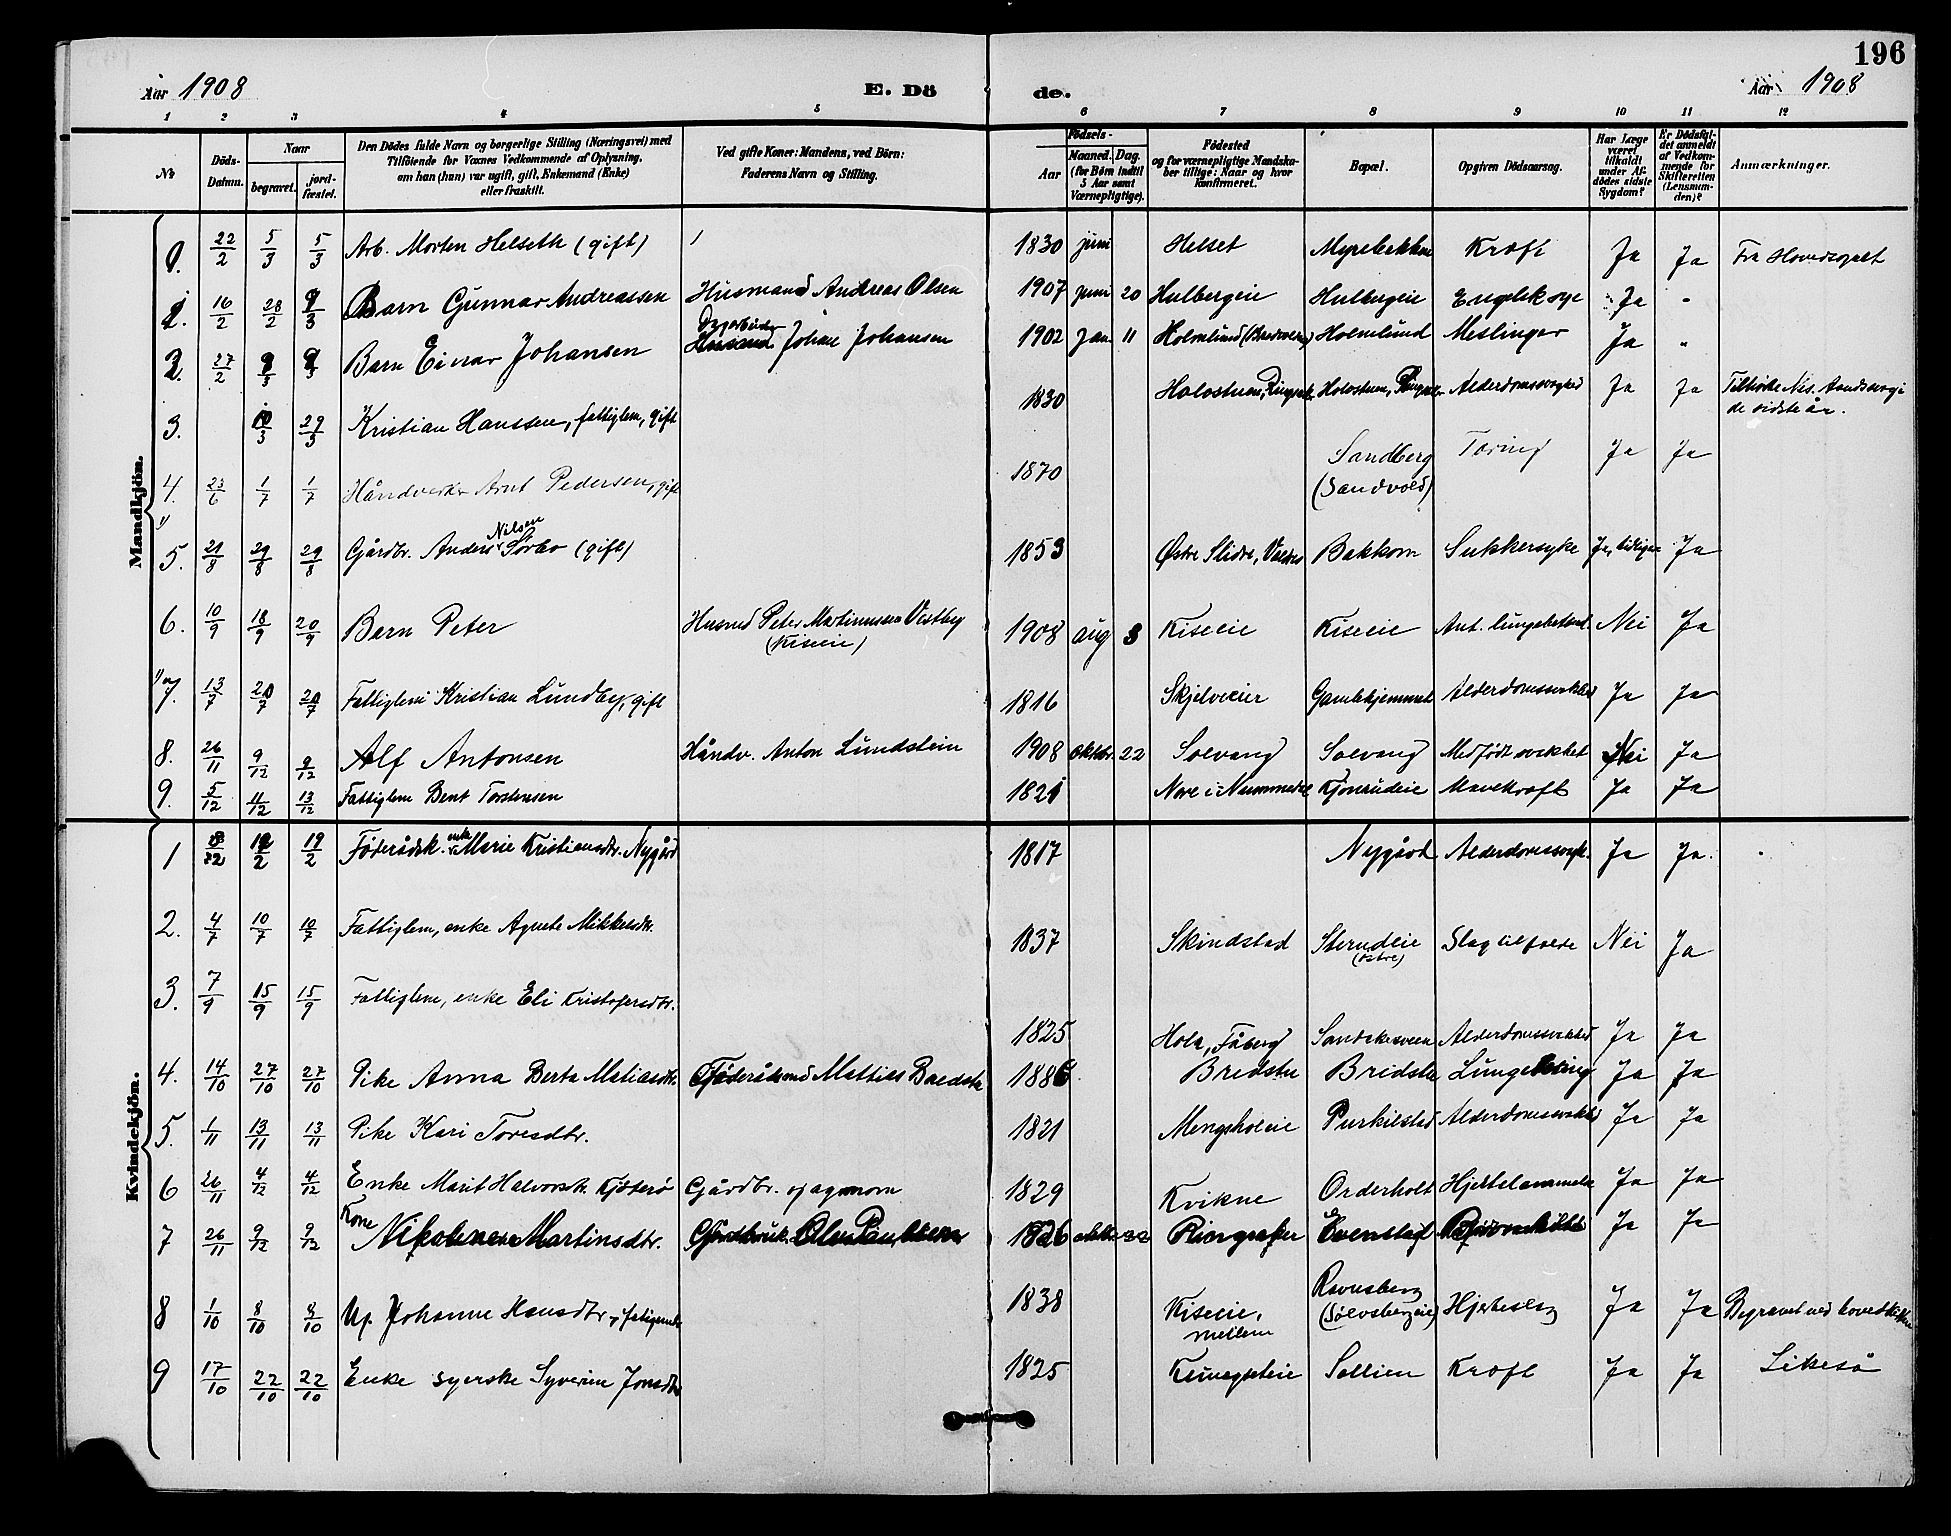 196
Aar 1908 E. Dö de. Aar 1908
1 2 3 4 5 6 7 8 9 10 11 12
No
Döds-Datum.
Naar
begravet.
jord-fæstet.
Den Dödes fulde Navn og borgerlige Stilling (Næringsvei) med
Tilföiende for Voxnes Vedkommende af Oplysning,
om han (hun) var ugift, gift, Enkemand (Enke)
eller fraskilt.
Ved gifte Koner: Mandens, ved Börn:
Faderens Navn og Stilling.
Födsels-
Aar
Maaned. Dag.
(for Börn indtil
5 Aar samt
Værnepligtige).
Födested
og for værnepligtige Mandska-
ber tillige: Naar og hvor
konfirmeret.
Bopæl.
Opgiven Dödsaarsag.
Har Læge
været
tilkaldt
under Af-
dödes sidste
Sygdom?
Er Dödsfal-
det anmeldt
af Vedkom-
mende for
Skifteretten
(Lensman-
den)?
Anmærkninger.
Mandkjön.
22/2 5/3 5/3 Arb. Morten Helseth (gift) 1830 juni Helset Myrebekken Kræft Ja Ja Fra Hovedsognet
16/2 28/2 Barn Gunnar Andreassen Husmand Andreas Olsen 1907 juni 20 Hulbergeie Hulbergeie Engelsksyge Ja "
2. 27/2 Barn Einar Johansen Johan Johansen 1902 Jan. 11 Holmlund Holmlund Meslinger Ja "
3. Kristian Hanssen, fattiglem, gift 1830 Ja Ja
de sidste år.
4. 23/6 1/7 1/7 Håndverker Arnt Pedersen, gift 1870 Sandberg (Sandvold) Tæring Ja Ja
5. 21/8 29/8 29/8 Gårdbr. Anders Nilsen Sørbo (gift) 1853 Østre Slidre, Valdres Bakkom Sukkersyke Ja Ja
6. 10/9 18/9 20/9 Barn Peter Husmd Peter Martinussen Vestby (Kiseeie) 1908 aug 3 Kiseeie Kiseeie Nei Ja
7. 13/7 20/7 20/7 Fattiglem Kristian Lundby, gift 1816 Gamlehjemmet Alderdomssvakhed Ja Ja
8. 26/11 9/12 9/12 Alf Antonsen Håndv. Anton Lundstein 1908 oktbr. 22 Solvang Solvang Medfødt svakhet Nei Ja
9. 5/12 11/12 13/12 Fattiglem Bent Torstensen 1821 Nore i Nummedal Kjonrudeie Mavekræft Ja Ja
Kvindekjön.
1 19/2 Føderådsk. enke Marie Kristiansdtr. Nygård 1817 Nygård Ja Ja.
2. 4/7 10/7 10/7 Fattiglem, enke Agnete Mikkelsdtr. 1837 Skindstad (østre) Slagtilfælde Nei Ja
3. 7/9 15/9 15/9 Fattiglem, enke Eli Kristofersdtr. 1825 Fåberg Alderdomssvakhed Ja Ja
4. 14/10 27/10 27/10 Pike Anna Berta Matiasdtr. Føderådsmd Mattias 1886 Ja Ja
5. 1/11 13/11 13/11 Pike Kari Toresdtr. 1821 Mengsholeie Purkilstad Alderdomssvakhed Ja Ja
6 26/11 4/12 4/12 Enke Marit Halvorsdtr. Gårdbr. og agronom 1829 Kvikne Ja Ja
7 26/11 9/12 9/12 Kone Martinsdtr. Ringsaker Evenstad Ja Ja
8 1/10 8/10 8/10 Up. Johanne Hansdtr. 1838 Kiseeie, mellem (Sølvsbergeie) Hjerteslag Ja Ja Begravet ved
9 17/10 22/10 22/10 Enke syerske Syverine Jonsdtr 1825 Sollien Kræft Ja Ja Likeså